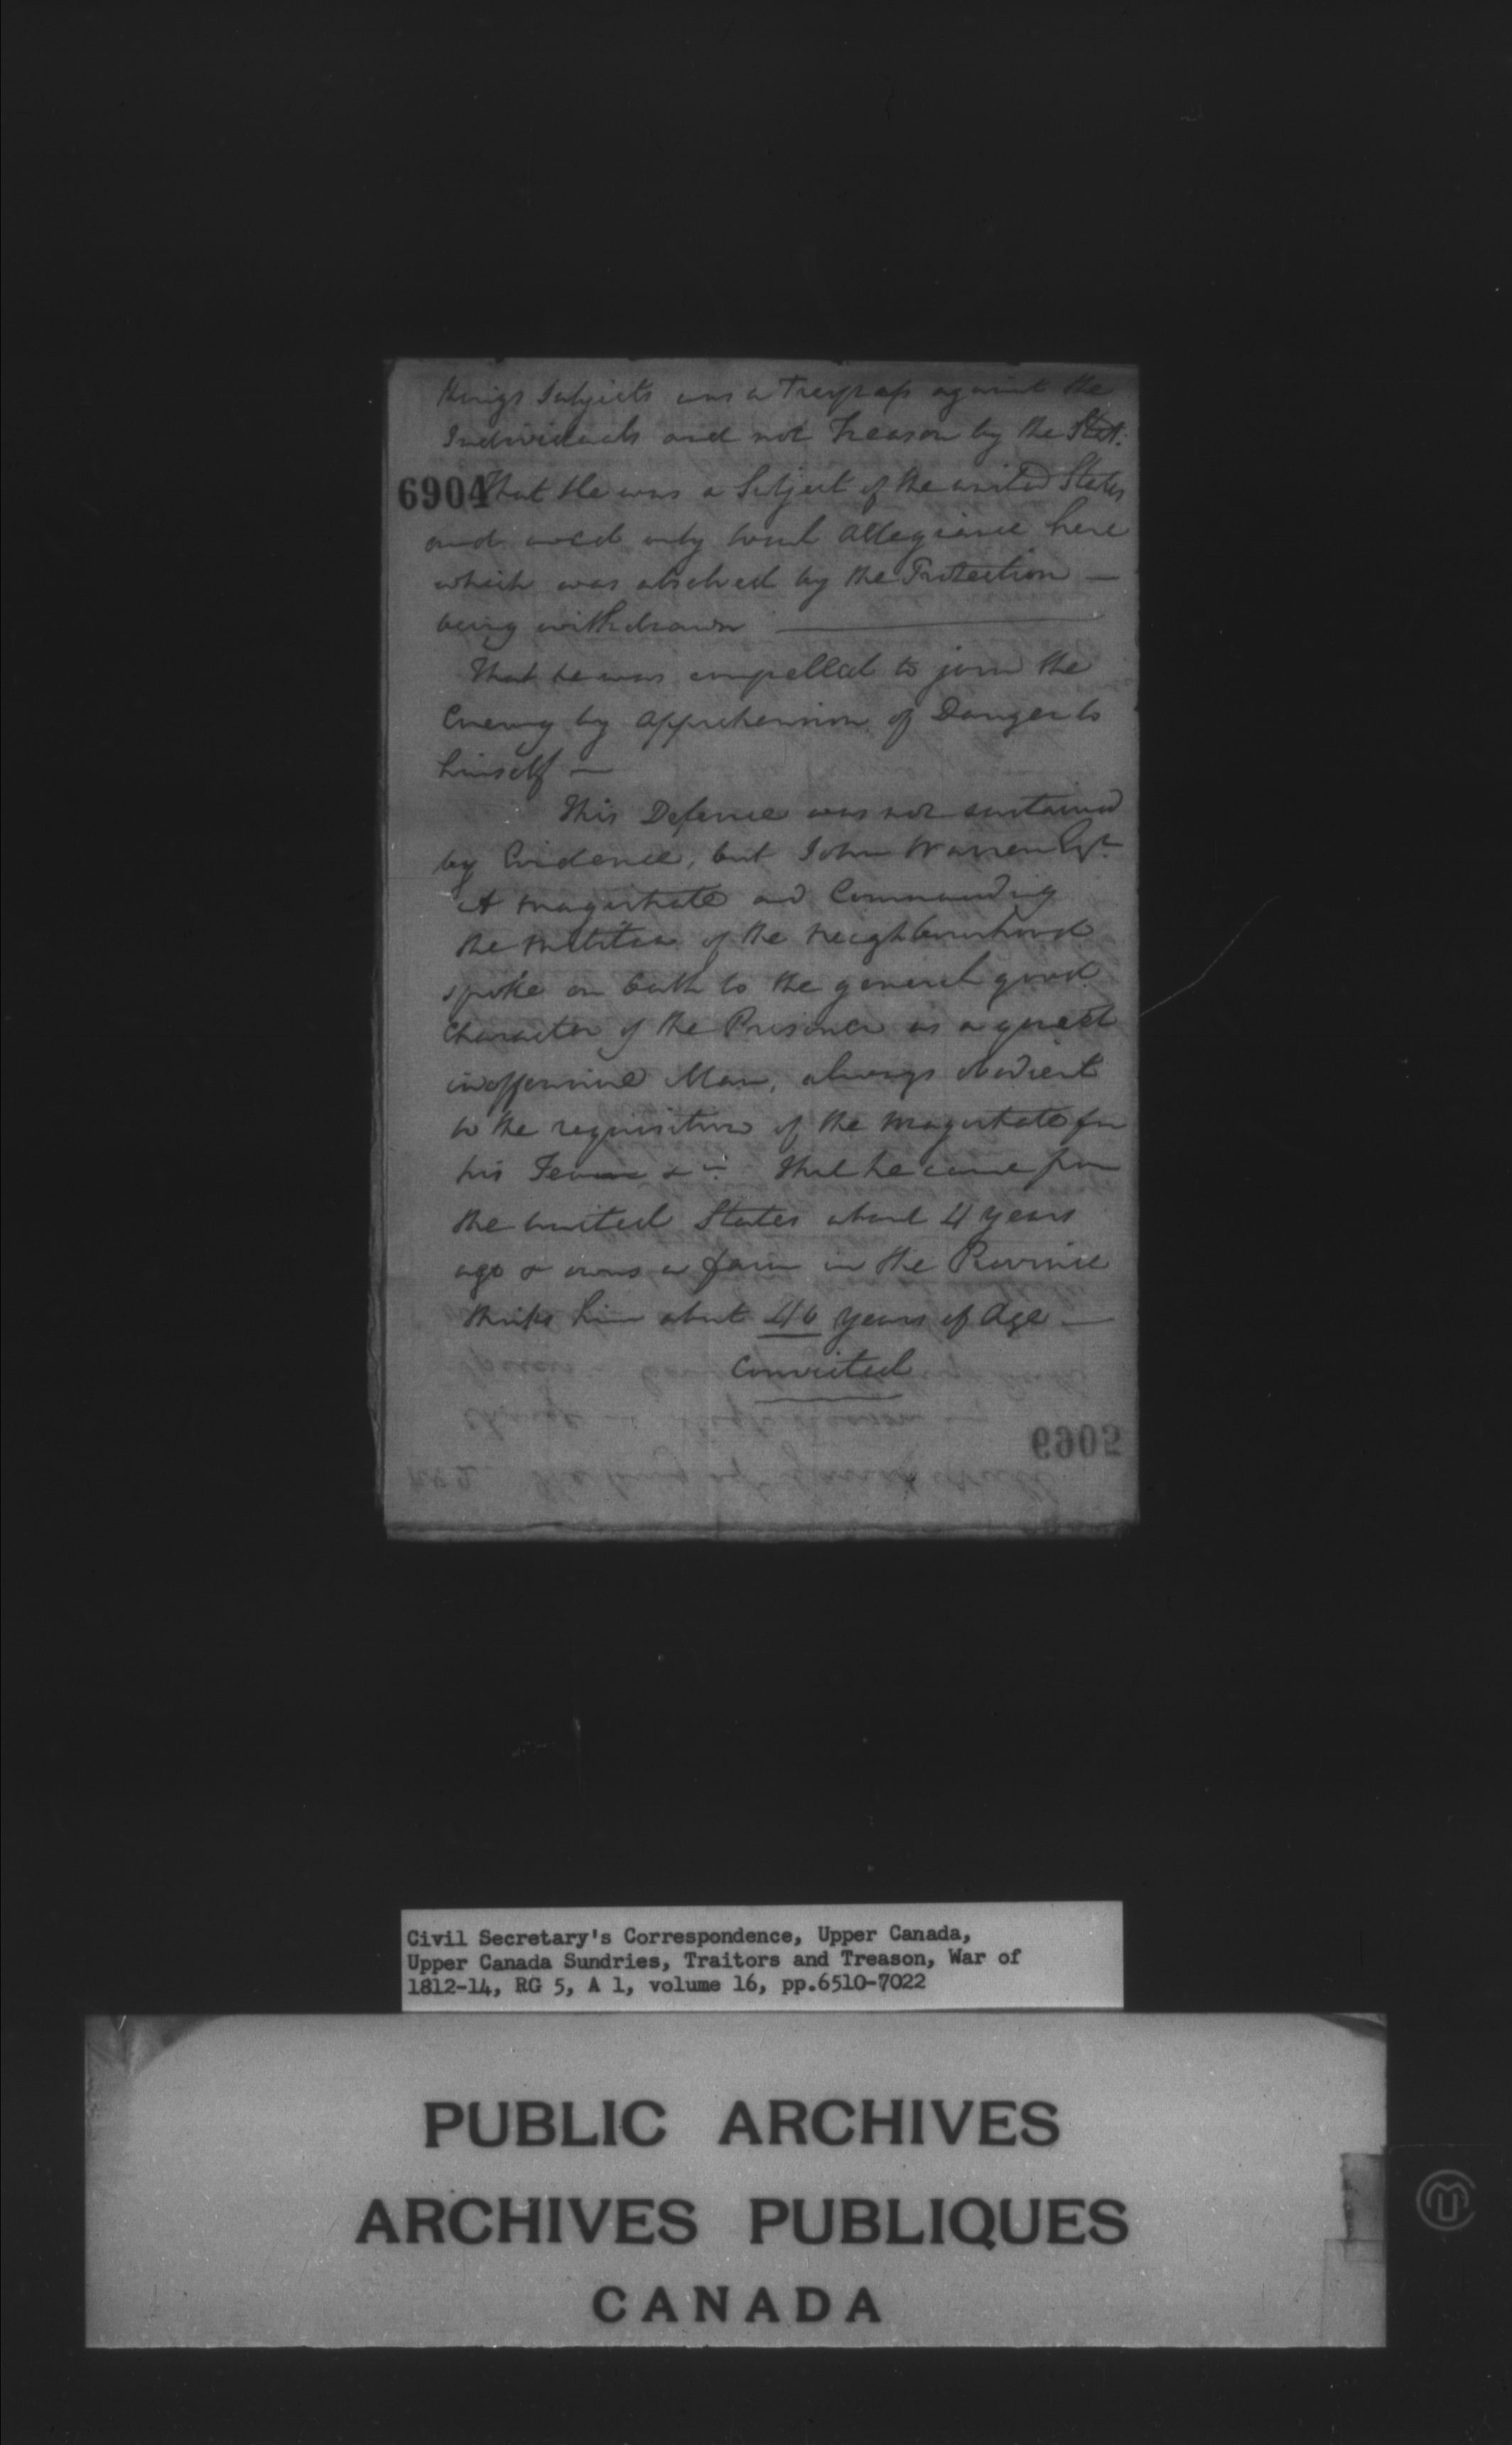 Kings Subjects was a Trespass against the
Individuals and not Treason by the Stat:
6904
That He was a Subject of the united States
and owed only local allegiance here
which was absolved by the Protection —
being withdrawn
That he was compelled to join the
Enemy by apprehension of Danger to
himself —
This Defence was not sustained
by Evidence, but John Warren Esqr
A magistrate and Commanding
the militia of the neighbourhood
spoke on oath to the general good
Character of the Prisoner as a quiet
inoffensive Man, always obedient
to the requisition of the magistrate for
his Team &c. That he came from
the united States about 4 years
ago & owns a farm in the Province
thinks him about 46 years of Age —
Convicted
6905
Civil Secretary's Correspondence, Upper Canada,
Upper Canada Sundries, Traitors and Treason, War of
1812-14, RG 5, A 1, volume 16, pp.6510-7022
PUBLIC ARCHIVES
ARCHIVES PUBLIQUES
CANADA